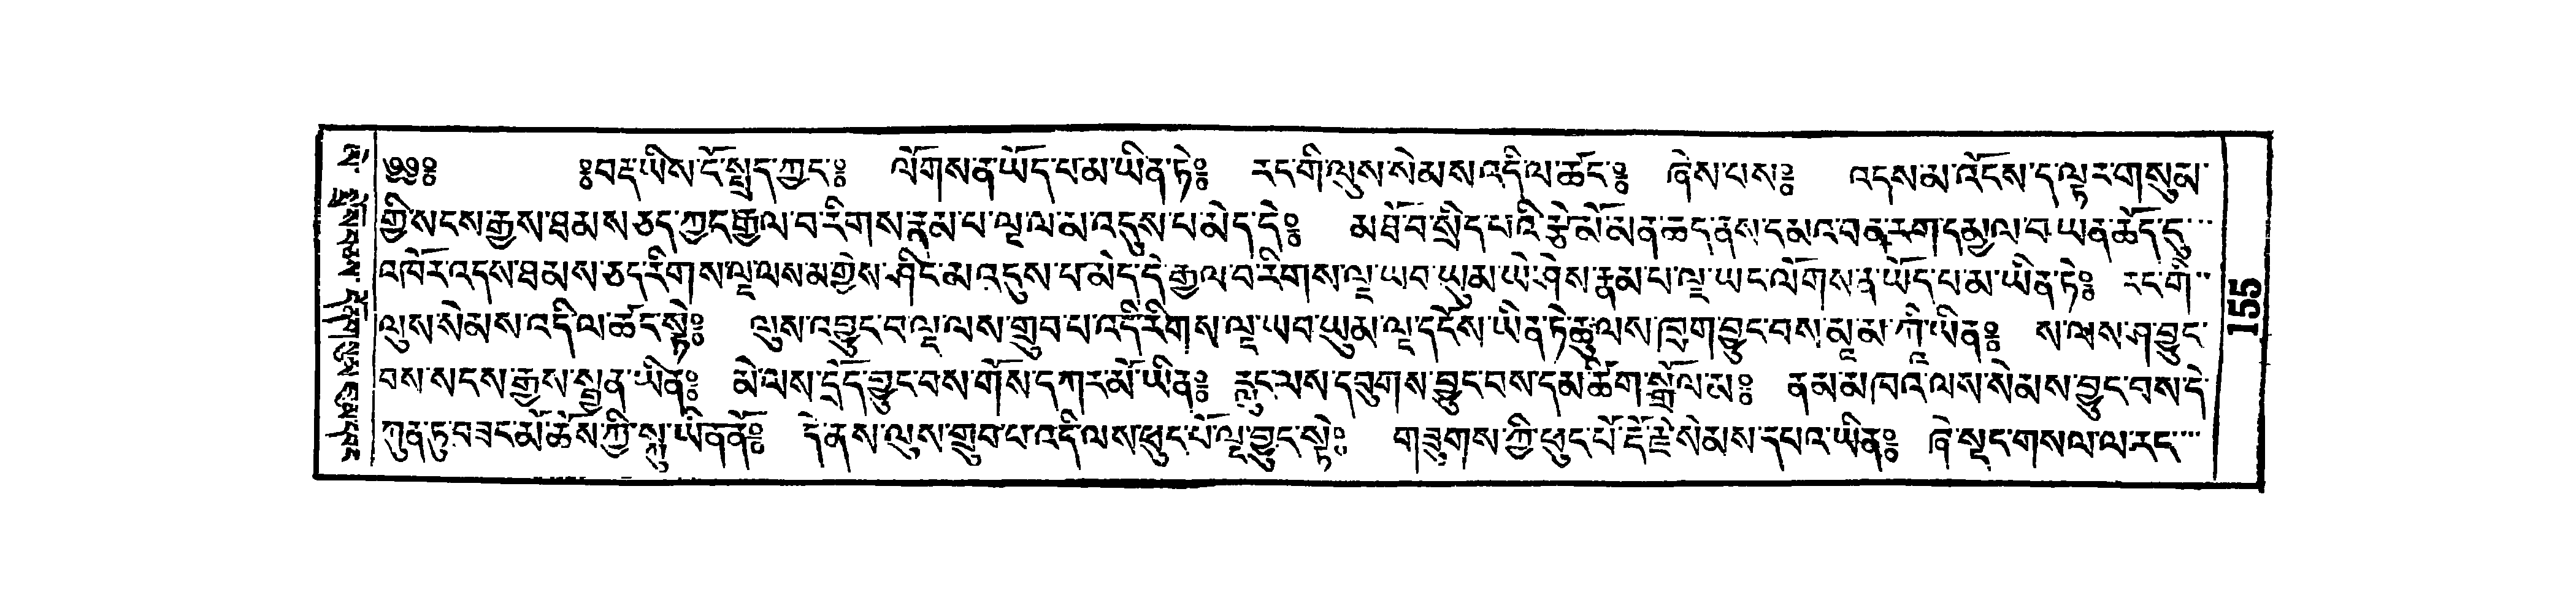 ༄༅༔ ༔བརྡ་ཡིས་ངོ་སྤྲད་ཀྱང་༔ ལོགས་ན་ཡོད་པ་མ་ཡིན་ཏེ༔ རང་གི་ལུས་སེམས་འདི་ལ་ཚང་༔ ཞེས་པས༔ འདས་མ་འོངས་ད་ལྟར་གསུམ་
གྱི་སངས་རྒྱས་ཐམས་ཅད་ཀྱང་རྒྱལ་བ་རིགས་རྣམ་པ་ལྔ་ལ་མ་འདུས་པ་མེད་དེ༔ མཐོ་བ་སྲིད་པའི་རྩེ་མོ་མན་ཆད་ནས་དམའ་བ་ནརག་དམྱལ་བ་ཡན་ཆོད་དུ་
འཁོར་འདས་ཐམས་ཅད་རིགས་ལྔ་ལས་མ་གྱེས་ཤིང་མ་འདུས་པ་མེད་དེ་རྒྱལ་བ་རིགས་ལྔ་ཡབ་ཡུམ་ཡེ་ཤེས་རྣམ་པ་ལྔ་ཡང་ལོགས་ན་ཡོད་པ་མ་ཡིན་ཏེ༔ རང་གི་
ལུས་སེམས་འདི་ལ་ཚང་སྟེ༔ ལུས་འབྱུང་བ་ལྔ་ལས་གྲུབ་པ་འདི་རིགས་ལྔ་ཡབ་ཡུམ་ལྔ་དངོས་ཡིན་ཏེ་ཆུ་ལས་ཁྲག་བྱུང་བས་མཱ་མ་ཀཱི་ཡིན༔ ས་ལས་ཤ་བྱུང་
བས་སངས་རྒྱས་སྤྱན་ཡིན༔ མེ་ལས་དྲོད་བྱུང་བས་གོས་དཀར་མོ་ཡིན༔ རླུང་ལས་དབུགས་བྱུང་བས་དམ་ཚིག་སྒྲོལ་མ༔ ནམ་མཁའ་ལས་སེམས་བྱུང་བས་དེ་
ཀུན་ཏུ་བཟང་མོ་ཆོས་ཀྱི་སྐུ་ཡིན་ནོ༔ དེ་ནས་ལུས་གྲུབ་པ་འདི་ལས་ཕུང་པོ་ལྔ་བྱུང་སྟེ༔ གཟུགས་ཀྱི་ཕུང་པོ་རྡོ་རྗེ་སེམས་དཔའ་ཡིན༔ ཞེ་སྡང་གསལ་ལ་རང་
155